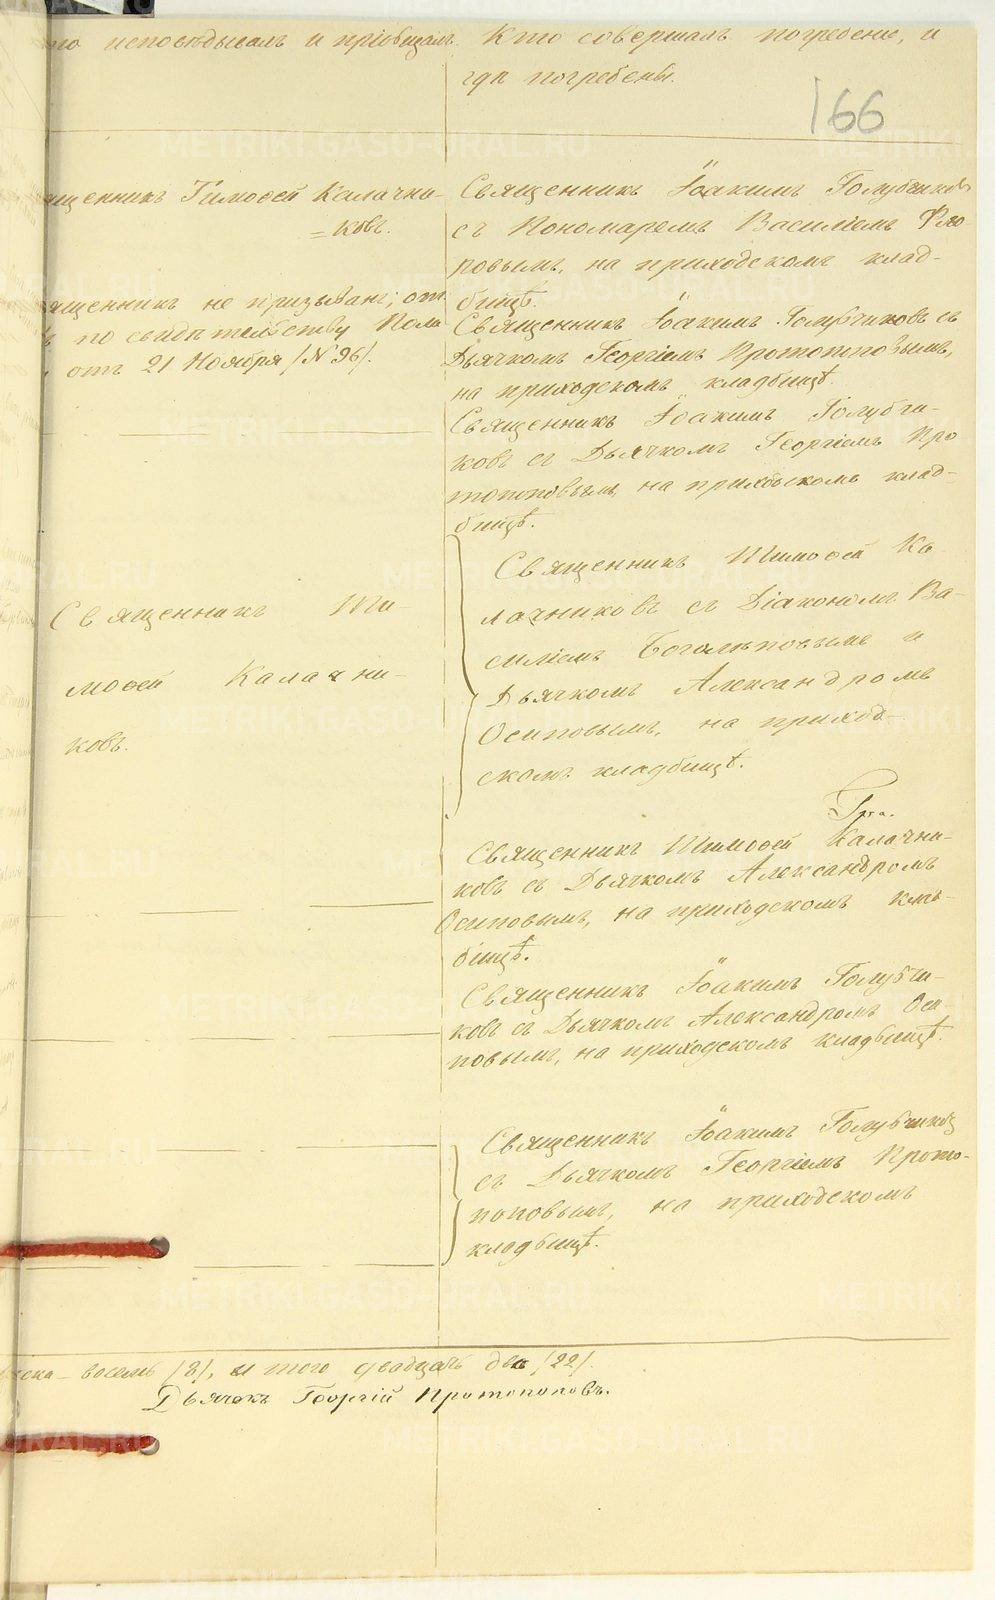 то исповѣдывалъ и пріобщалъ.
Кто совершалъ погребеніе, и
гдѣ погребены.
166
ященникъ Тимоѳей Калачни-
=ковъ.
Священникъ Іоакимъ Голубчиковъ
съ Пономаремъ Василіемъ Фло-
ровымъ, на приходскомъ клад-
бищѣ.
ященникъ не призыванъ; отп
по свидѣтельству Пола
отъ 21 Ноября /№ 96/.
Священникъ Іоакимъ Голубчиковъ съ
Дьячкомъ Георгіемъ Протопоповымъ,
на приходскомъ кладбищѣ.
Священникъ Іоакимъ Голубчи-
ковъ съ Дьячкомъ Георгіемъ Про
топоповымъ, на приходскомъ клад-
бищѣ.
Священникъ Ти-
моѳей Калачни-
ковъ.
Священникъ Тимоѳей Ка-
лачниковъ съ Діакономъ Ва-
силіемъ Боголѣповымъ и
Дьячкомъ Александромъ
Осиповымъ, на приход-
скомъ кладбищѣ.
Священникъ Тимоѳей Калачни-
ковъ съ Дьячкомъ Александромъ
Осиповымъ, на приходскомъ клад-
бищѣ.
Священникъ Іоакимъ Голубчи-
ковъ съ Дьячкомъ Александромъ Оси
повымъ, на приходскомъ кладбищѣ.
Священникъ Іоакимъ Голубчиковъ
съ Дьячкомъ Георгіемъ Прото-
поповымъ, на приходскомъ
кладбищѣ.
восемь /8/, и того двадцать два /22/.
Дьячекъ Георгій Протопоповъ.
METRIKI.GASO-URAL.RU